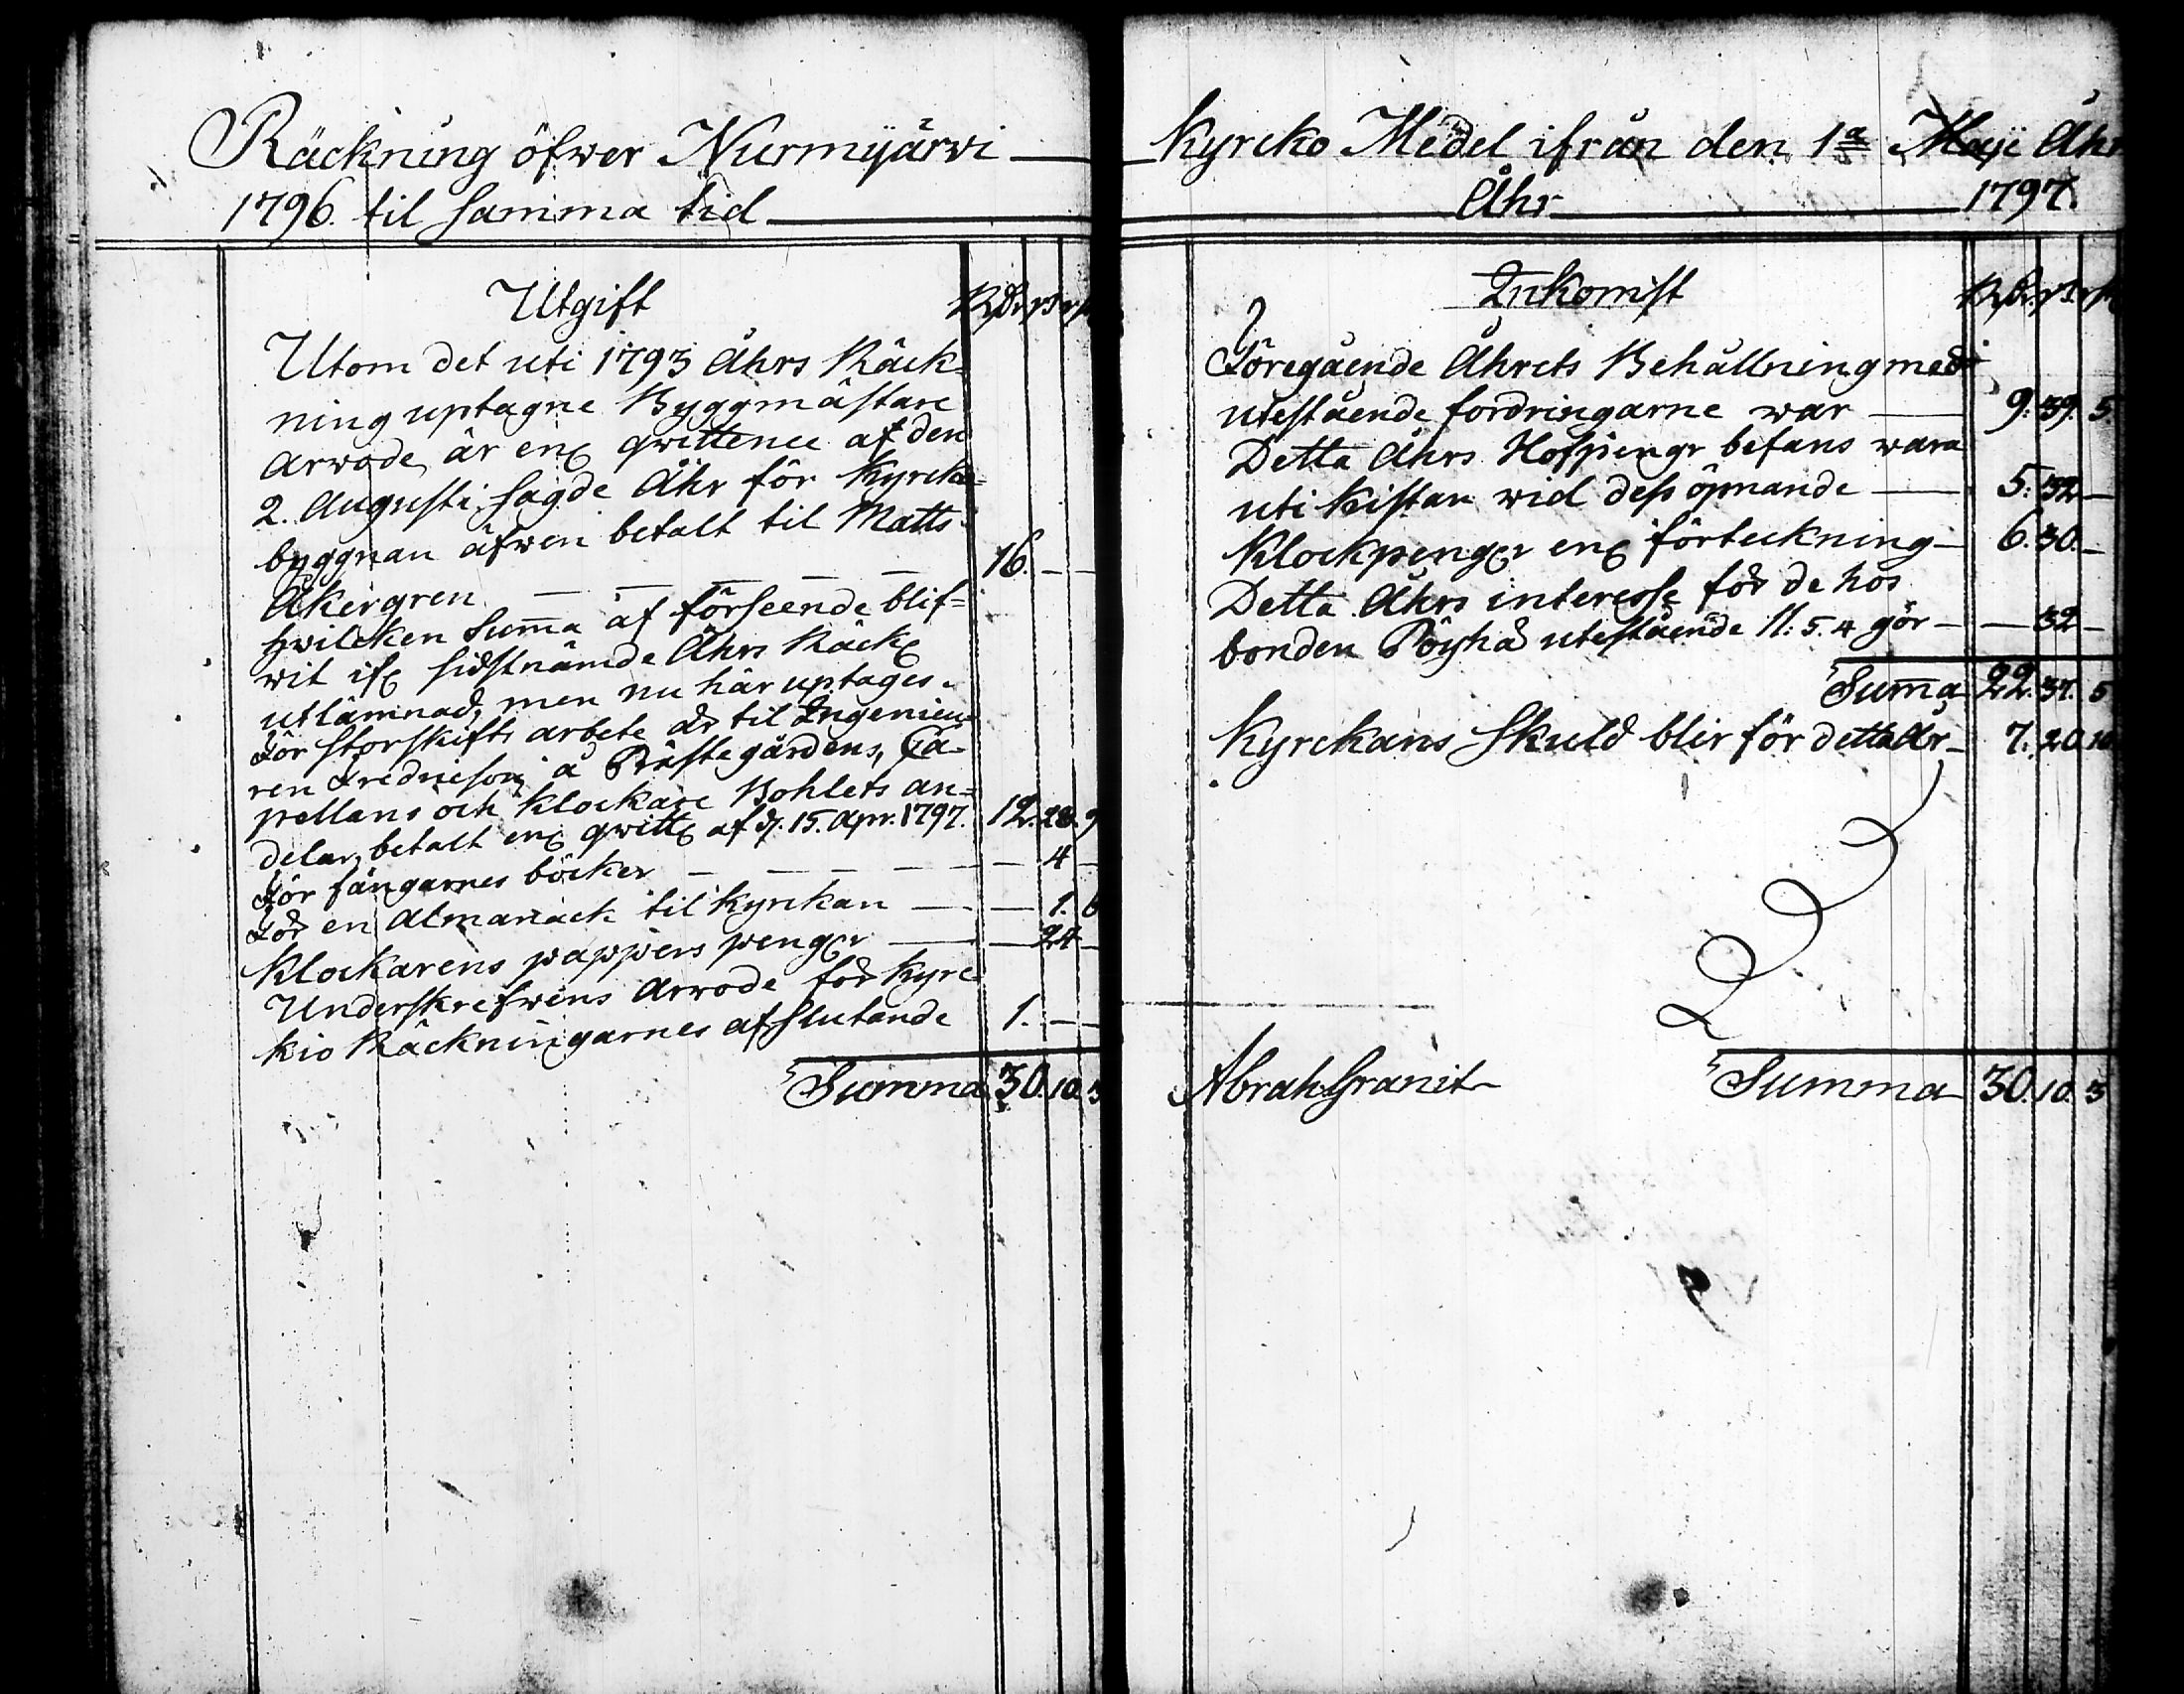 Räckning öfwer Nurmijärvi
1796. til samma tid
Utgift Rdr. ß. rst
Utom det uti 1793 Åhrs Räck=
ning uptagne Byggmästare
arwode, är enl. qwittence af den
2. Augusti sagde Åhr för Kyrcko=
byggnan äfwen betalt til Matts
Åkergren — — — — — 16. — —
hwilcken Sum̄a af förseende blif=
wit ifr. sidstnämde Åhrs Räck.
utlämnad, men nu här uptages.
För storskifts arbete är til Ingenieu=
ren Fredricson å Prästegårdens, Ca=
pellans och Klockare Bohlets an=
delar, betalt enl. qwitt. af d. 15. Apr. 1797. 12. 28. 9
För fångarnes böcker — — — — — 4 —
För en Almanack til Kyrckan — — 1. 6
Klockarens pappers penger — — 24 —
Underskrefwens Arwode för Kyrc=
kio Räckningarnes afslutande 1. — —
Summa 30. 10. 3
Kyrcko Medel ifrån den 1a Maji Åhr
Åhr 1797.
Inkomst Rdr. ß. rst
Föregående Åhrets Behållning med
utestående fordringarne war — 9: 39. 5.
Detta Åhrs Hofpengr befans wara
uti kistan wid dess öpnande — 5: 32 —
Klockpenger enl. förteckning — 6. 30. —
Detta Åhrs interesse för de hos
bonden Pöyhä utestående 11: 5. 4 gör — — 32 —
Sum̄a 22. 37. 5
Kyrckans Skuld blir för detta År — 7. 20. 10
Abrah Granit Summa 30. 10. 3